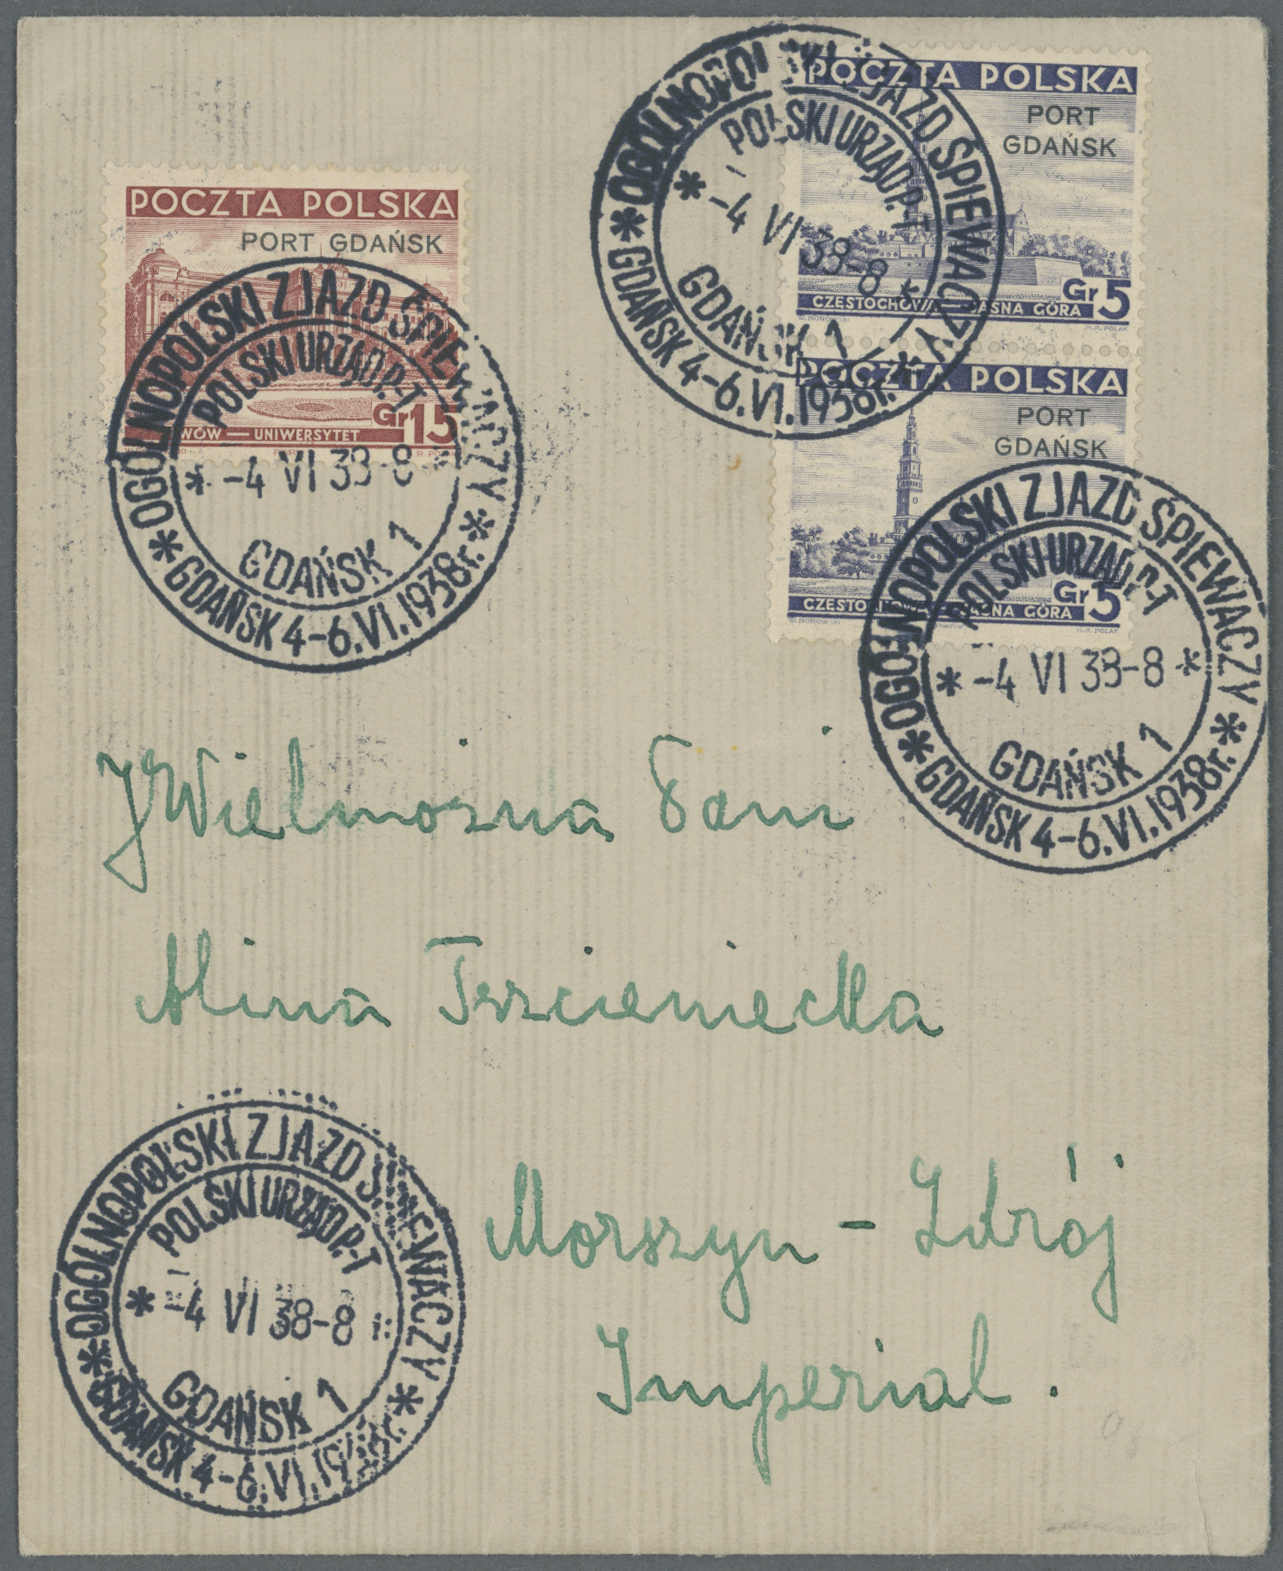 POCZTA POLSKA
PORT
GDAŃSK
CZĘSTOCHOWA — JASNA GÓRA Gr 5
POCZTA POLSKA
PORT GDAŃSK
LWÓW — UNIWERSYTET Gr 15
POCZTA POLSKA
PORT
GDAŃSK
CZĘSTOCHOWA — JASNA GÓRA Gr 5
OGÓLNOPOLSKI ZJAZD ŚPIEWACZY
POLSKI URZĄD P.-T
* -4 VI 38-8 *
GDAŃSK 1
* GDAŃSK 4-6.VI.1938r. *
OGÓLNOPOLSKI ZJAZD ŚPIEWACZY
POLSKI URZĄD P.-T
* -4 VI 38-8
GDAŃSK 1
* GDAŃSK 4-6.VI.1938r. *
OGÓLNOPOLSKI ZJAZD ŚPIEWACZY
POLSKI URZĄD P.-T
* -4 VI 38-8 *
GDAŃSK 1
* GDAŃSK 4-6.VI.1938r. *
JWielmożna Pani
Alina Trzcieniecka
Morszyn - Zdrój
Imperial.
OGÓLNOPOLSKI ZJAZD ŚPIEWACZY
POLSKI URZĄD P.-T
* -4 VI 38-8
GDAŃSK 1
* GDAŃSK 4-6.VI.1938r. *